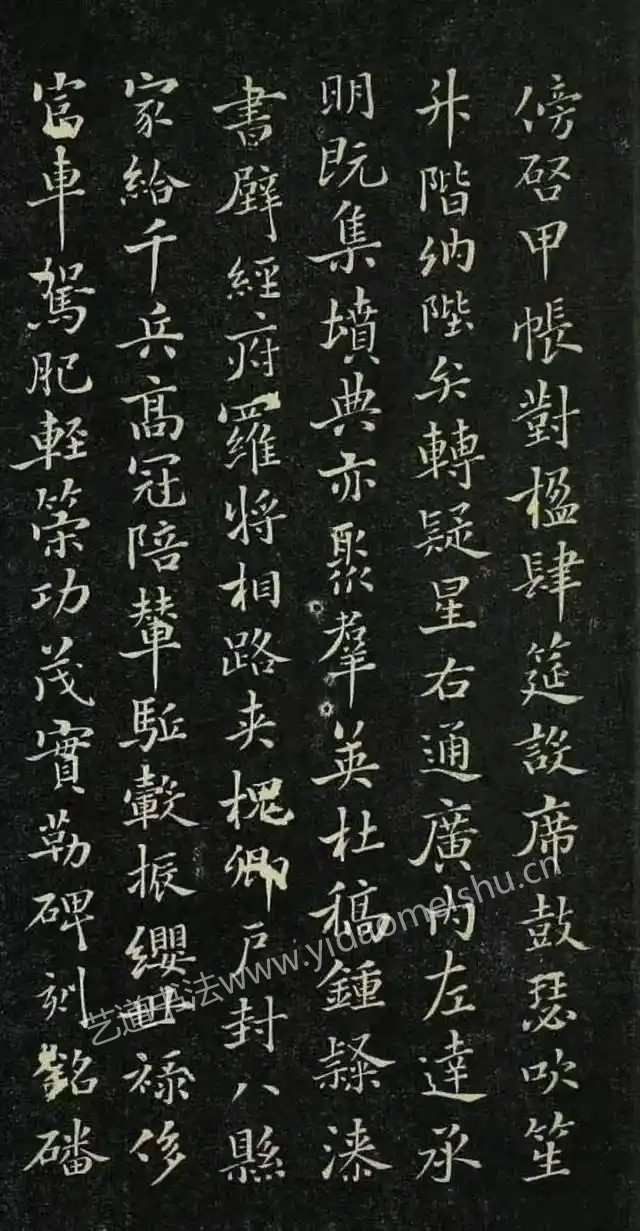 傍啓甲帳對楹肆筵設席鼓瑟吹笙
升階納陛弁轉疑星右通廣內左達承
明既集墳典亦聚羣英杜稿鍾隸漆
書壁經府羅將相路夾槐卿戶封八縣
家給千兵高冠陪輦駈轂振纓世祿侈
富車駕肥輕策功茂實勒碑刻銘磻
艺道书法www.yidaomeishu.cn